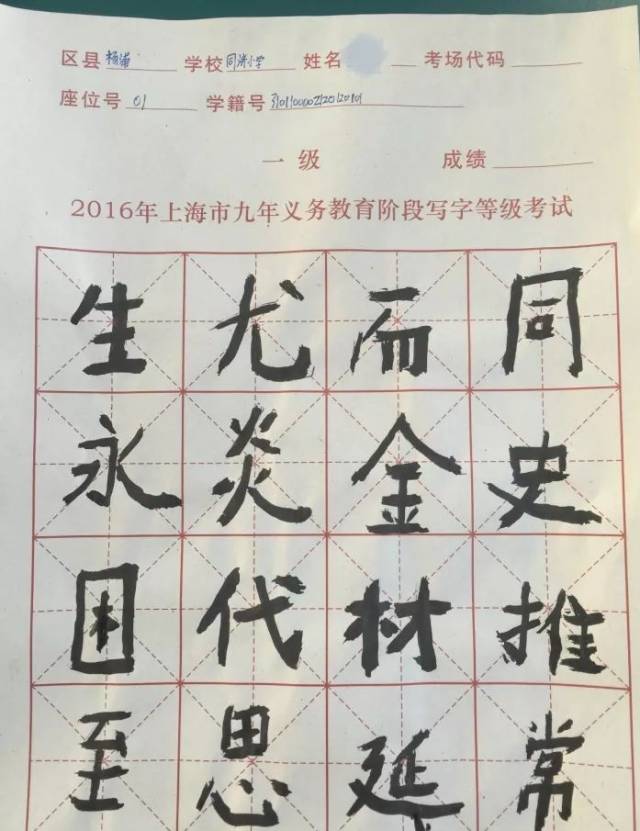 区县 杨浦 学校 同济小学 姓名 考场代码
座位号 01 学籍号
一级 成绩
2016年上海市九年义务教育阶段写字等级考试
生 尤 而 同
永 炎 金 史
困 代 材 推
至 思 延 常